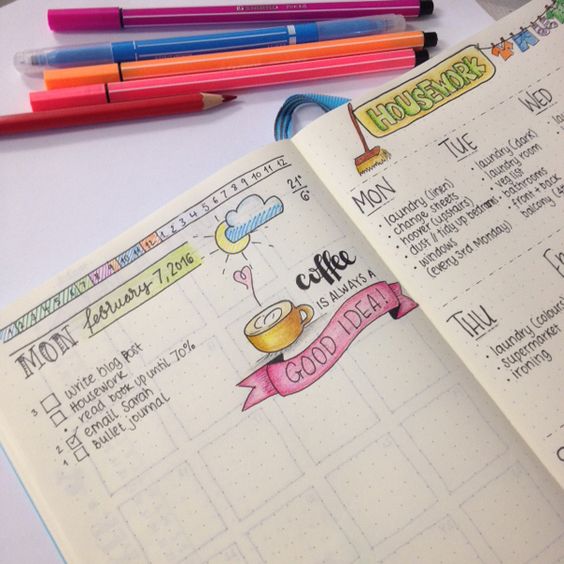 HOUSEWORK
12 1 2 3 4 5 6 7 8 9 10 11 12
21°
6°
MON
february 7, 2016
coffee
IS ALWAYS A
GOOD IDEA!
3 write blog post
Housework
• read book up until 70%
2 email Sarah
1 Bullet journal
MON
• laundry (linen)
change sheets
• hoover (upstairs)
dust // tidy up bedrooms
• windows
(every 3rd Monday)
TUE
• laundry (dark)
• laundry room
• veg list
• bathrooms
• front + back
balcony
WED
THU
• laundry (colours)
• supermarket
• ironing